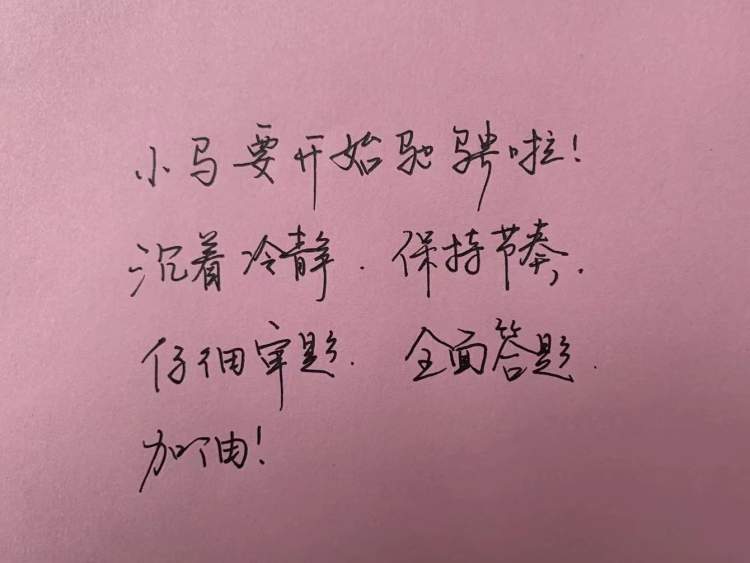 小马要开始驰骋啦!
沉着冷静.保持节奏,.
仔细审题.全面答题.
加油!